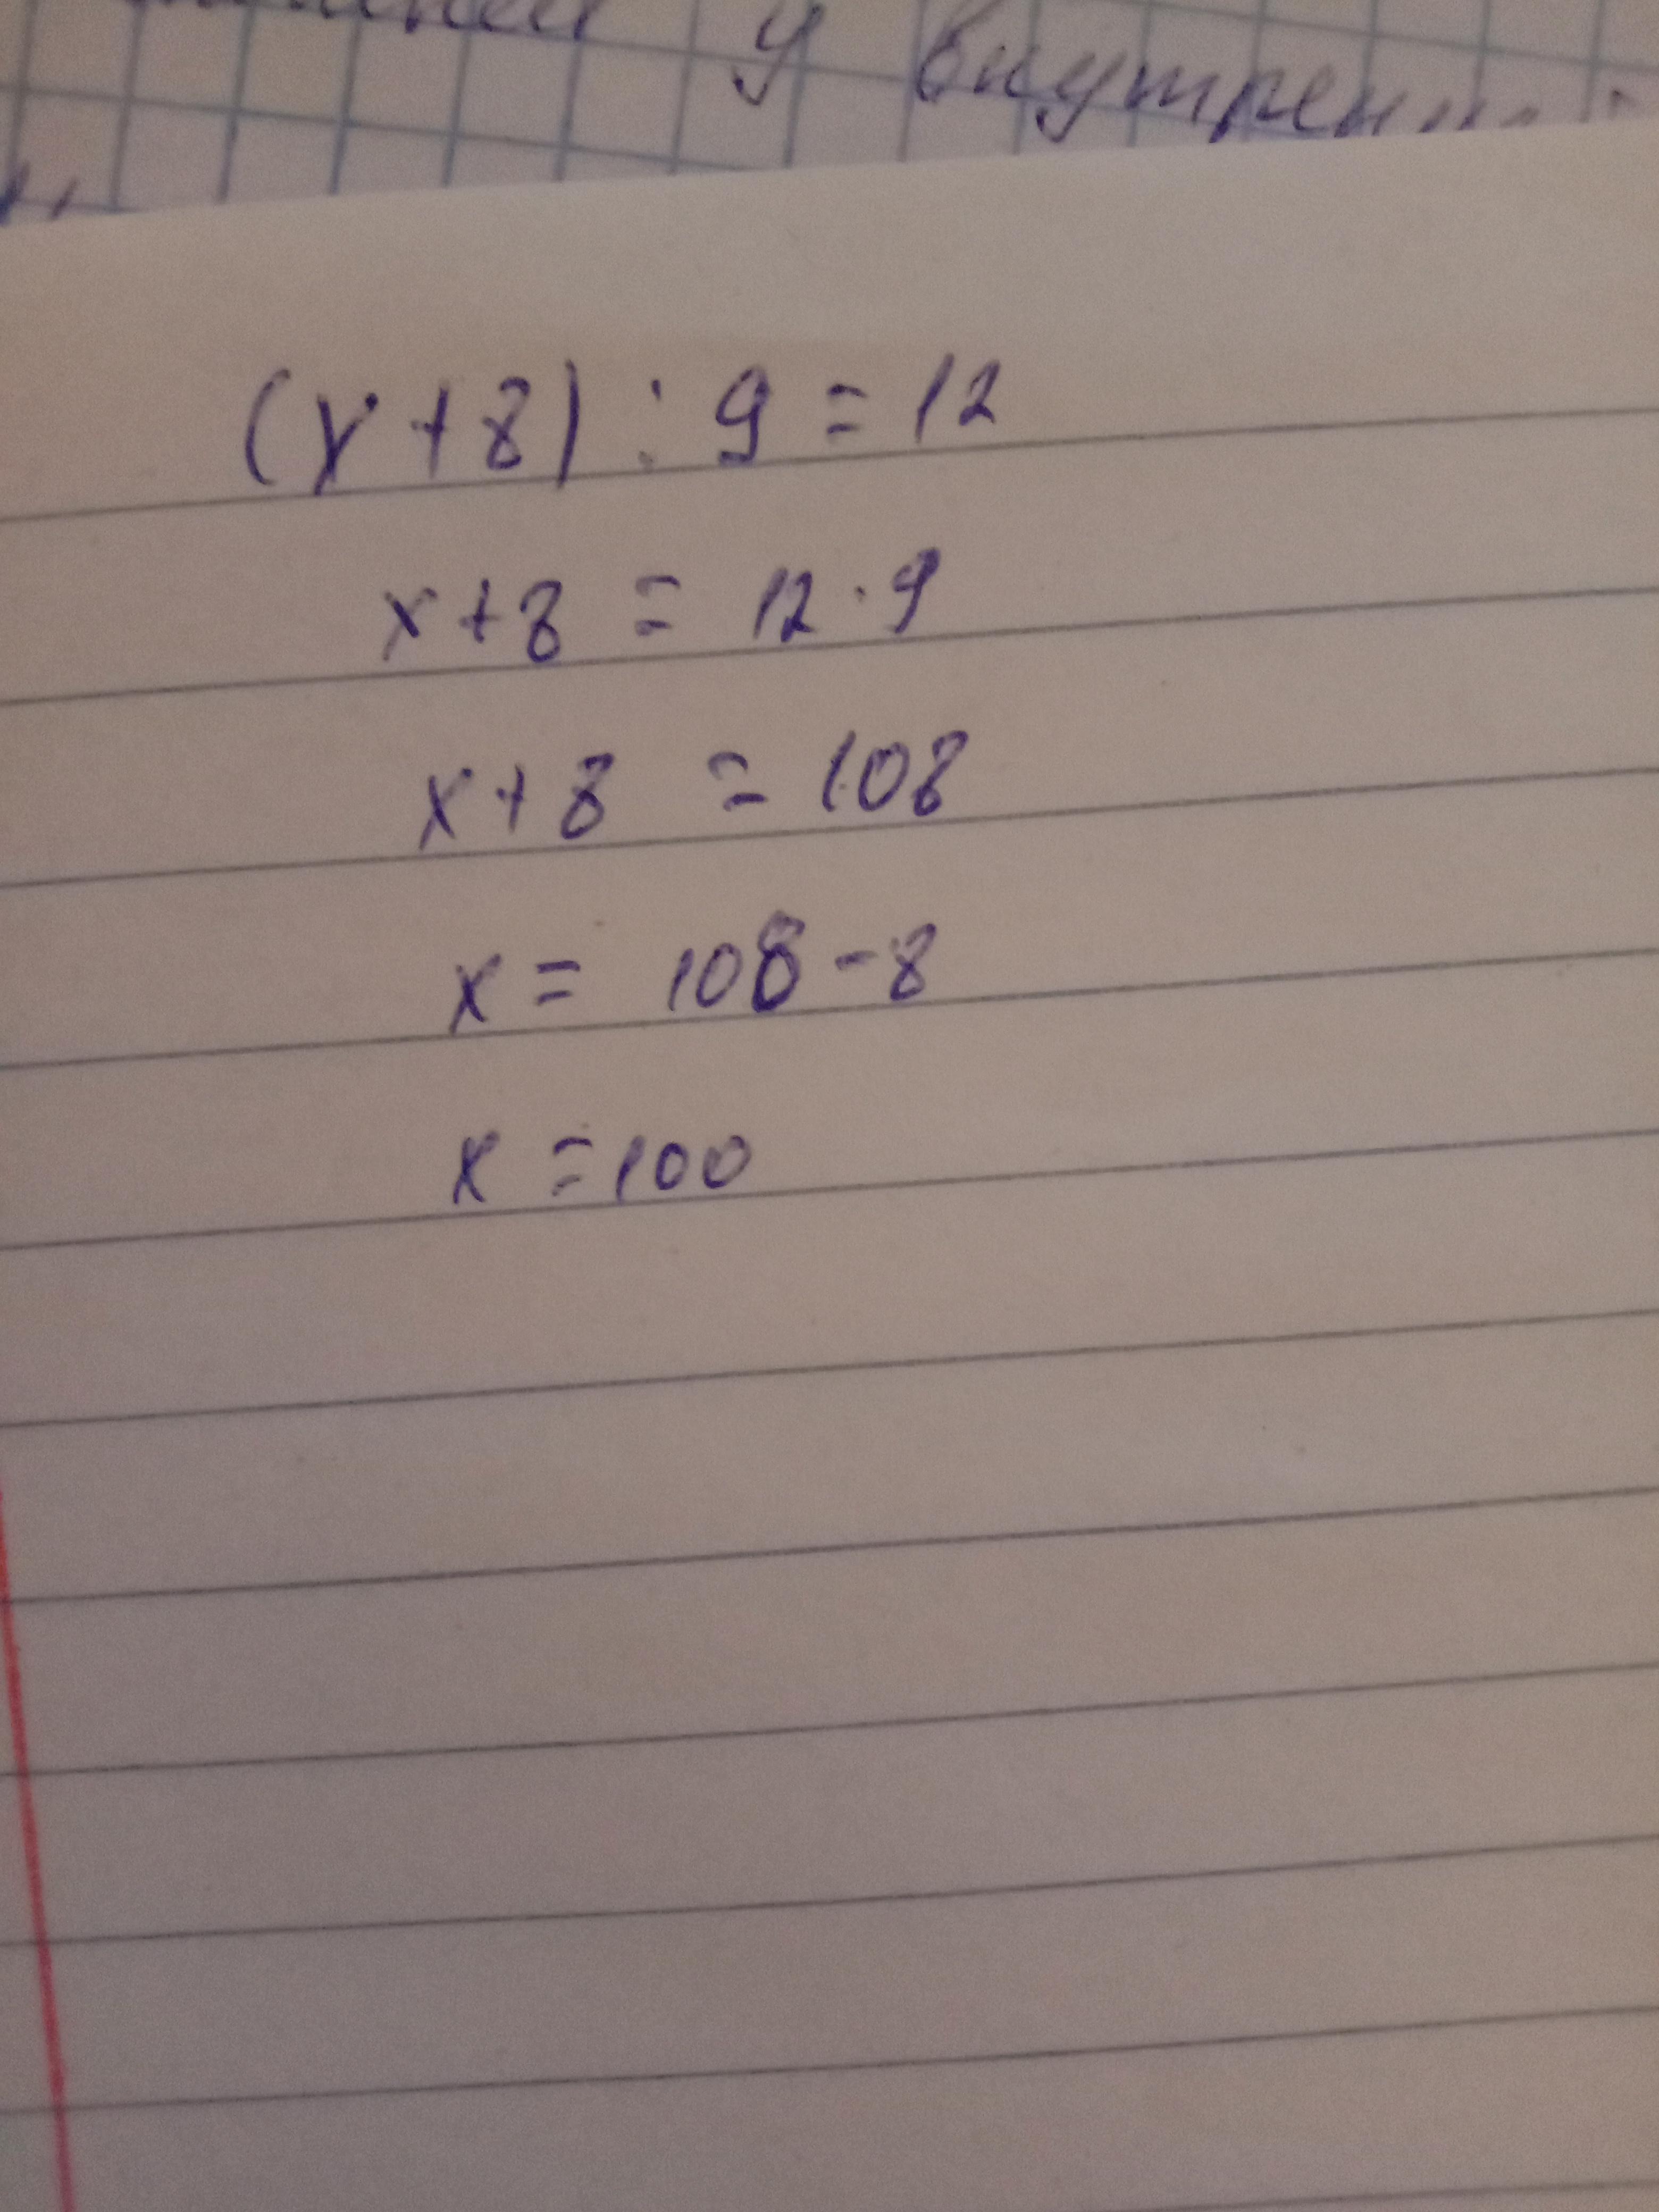 у внутрен
(x+8) : 9 = 12
x+8 = 12 · 9
x+8 = 108
x = 108 - 8
x = 100